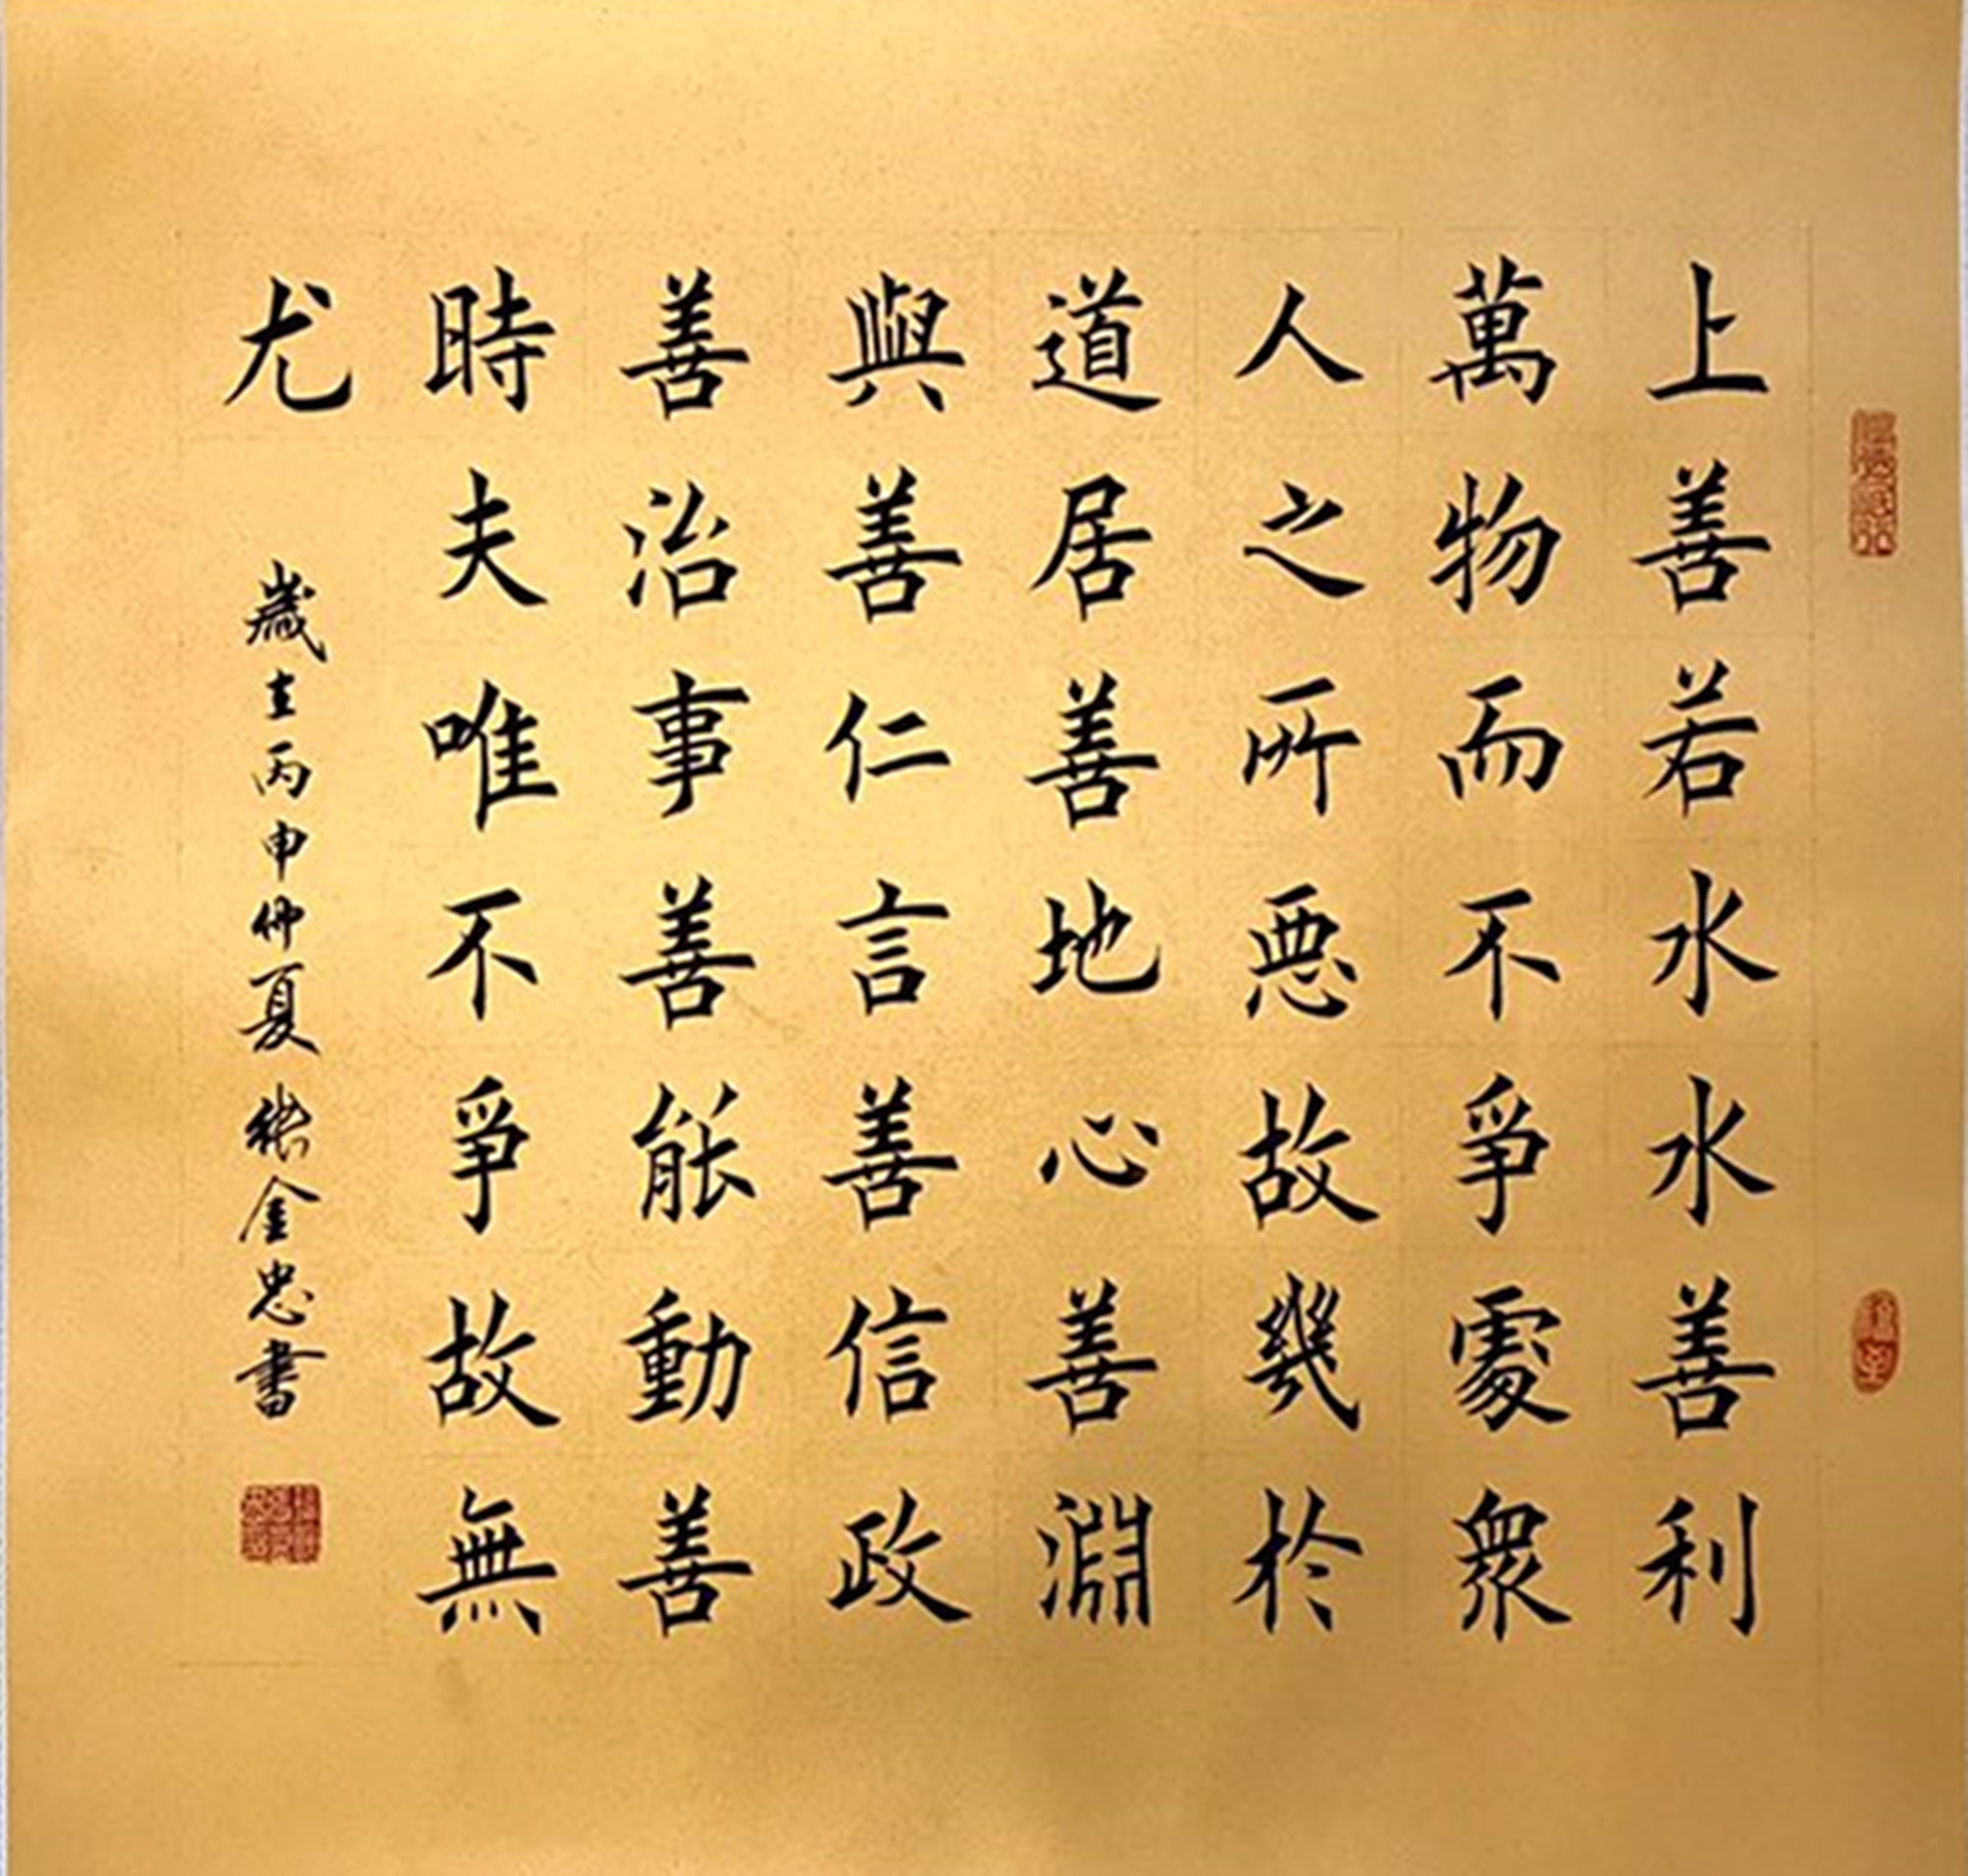 上善若水水善利
萬物而不爭處衆
人之所惡故幾於
道居善地心善淵
與善仁言善信政
善治事善能動善
時夫唯不爭故無
尤
歲在丙申仲夏張金忠書